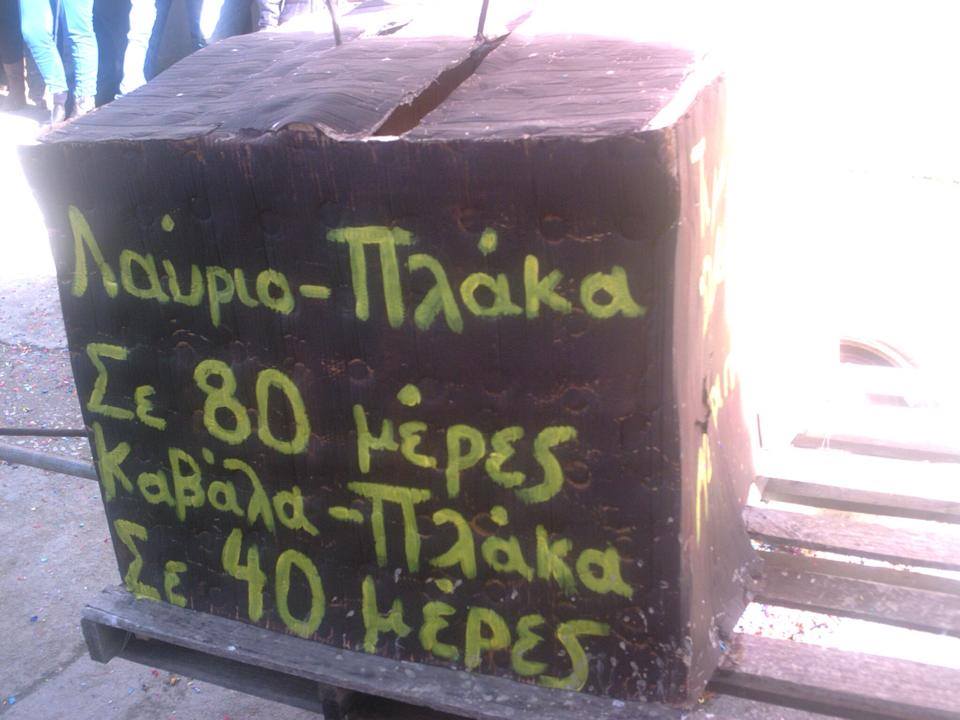 Λαύριο-Πλάκα
Σε 80 μέρες
Καβάλα-Πλάκα
Σε 40 μέρες